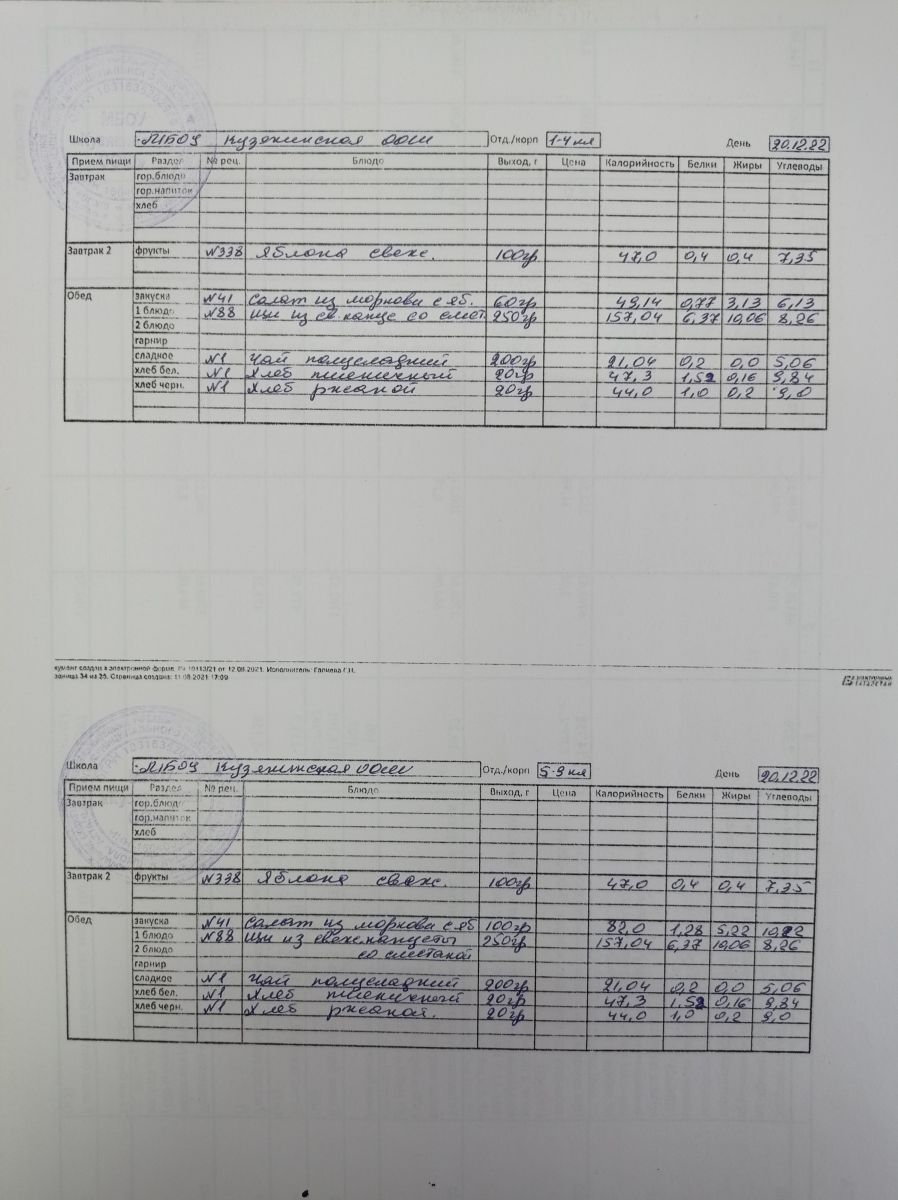 Школа МБОУ Кузякинская ООШ Отд./корп 1-4 кл День 20.12.22
Прием пищи Раздел № рец. Блюдо Выход, г Цена Калорийность Белки Жиры Углеводы
Завтрак гор.блюдо
гор.напиток
хлеб
Завтрак 2 фрукты №338 Яблоки свеж. 100гр 47,0 0,4 0,4 7,35
Обед закуска №41 Салат из моркови с яб. 60гр 49,14 0,77 3,13 6,13
1 блюдо №88 Щи из св.капус со смет 250гр 157,04 6,37 10,06 8,26
2 блюдо
гарнир
сладкое №1 Чай полусладкий 200гр 21,04 0,2 0,0 5,06
хлеб бел. №1 Хлеб пшеничный 20гр 47,3 1,52 0,16 9,84
хлеб черн. №1 Хлеб ржаной 20гр 44,0 1,0 0,2 9,0
кумент создан в электронной форме. № 10113/21 от 12.08.2021. Исполнитель: Галиева Г.Н.
раница 34 из 35. Страница создана: 11.08.2021 17:09
ЭЛЕКТРОННЫЙ
ТАТАРСТАН
Школа МБОУ Кузякинская ООШ Отд./корп 5-9 кл День 20.12.22
Прием пищи Раздел № рец. Блюдо Выход, г Цена Калорийность Белки Жиры Углеводы
Завтрак гор.блюдо
гор.напиток
хлеб
Завтрак 2 фрукты №338 Яблоки свеж. 100гр 47,0 0,4 0,4 7,35
Обед закуска №41 Салат из моркови с яб 100гр 82,0 1,28 5,22 10,22
1 блюдо №88 Щи из свеж.капусты 250гр 157,04 6,37 10,06 8,26
2 блюдо со сметаной
гарнир
сладкое №1 Чай полусладкий 200гр 21,04 0,2 0,0 5,06
хлеб бел. №1 Хлеб пшеничный 20гр 47,3 1,52 0,16 9,84
хлеб черн. №1 Хлеб ржаной. 20гр 44,0 1,0 0,2 9,0